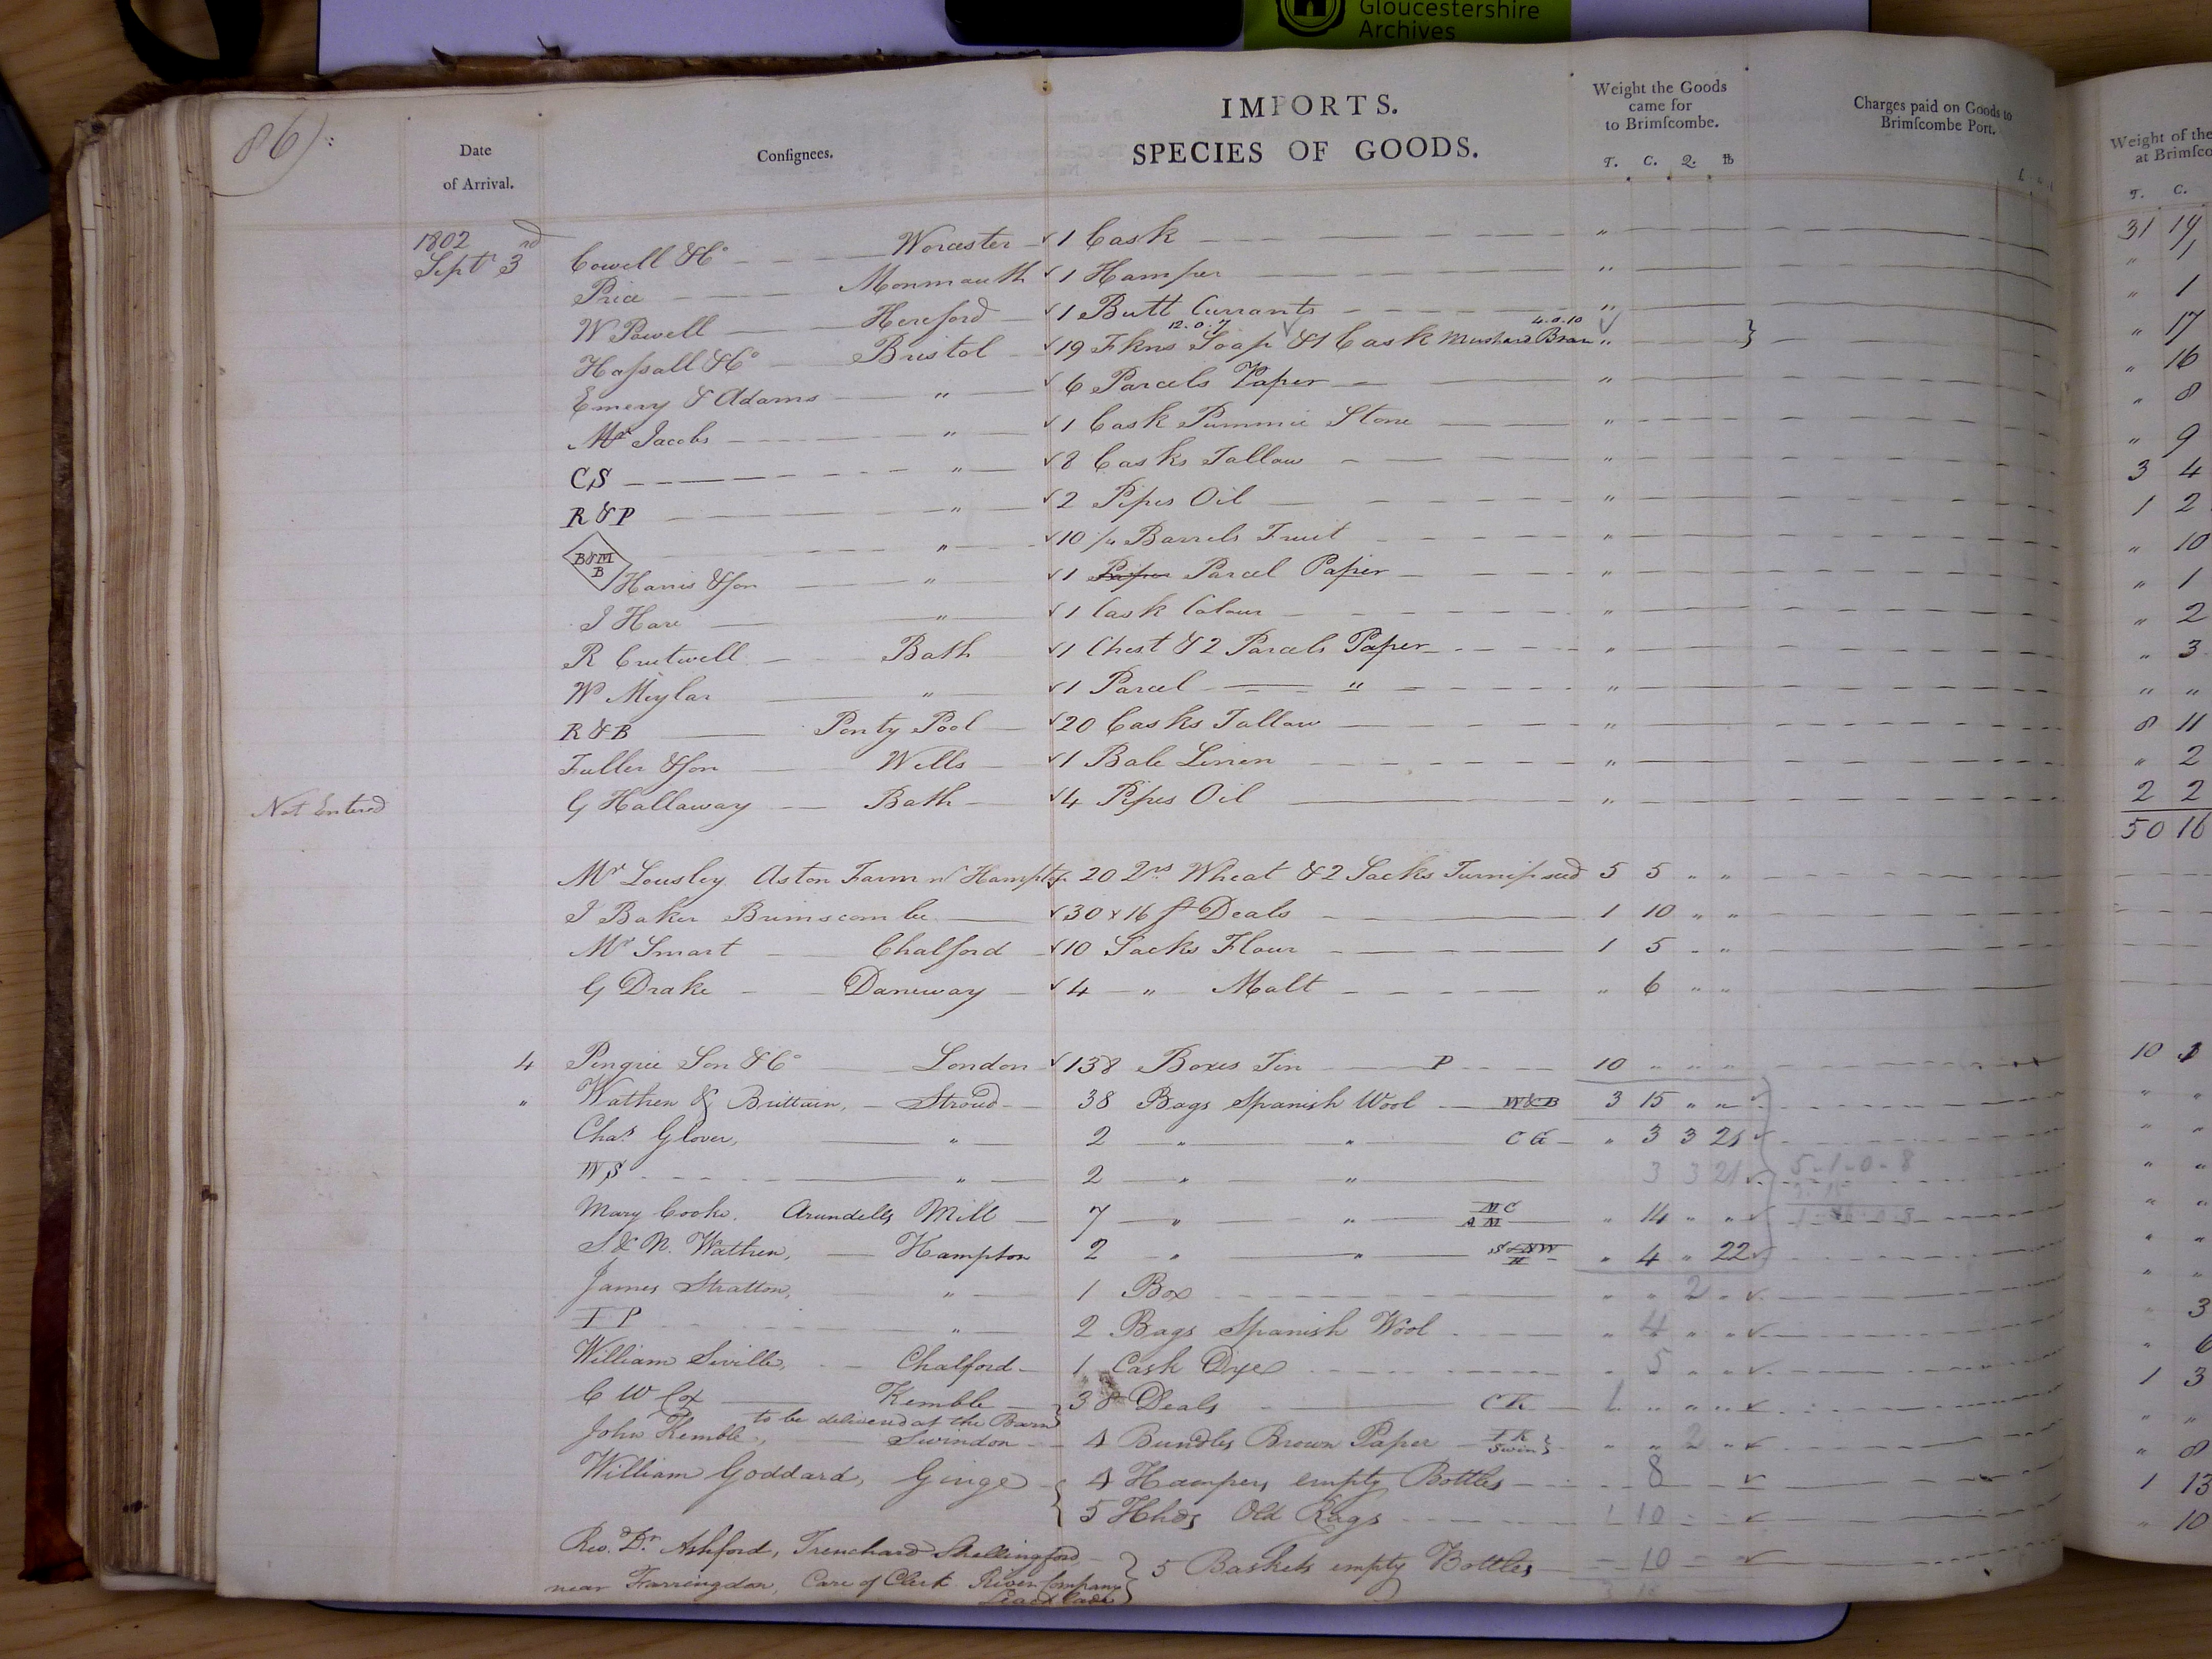 Gloucestershire
Archives
86):
Date
of Arrival.
Consignees.
IMPORTS.
SPECIES OF GOODS.
Weight the Goods
came for
to Brimscombe.
T. C. Q. lb
Charges paid on Goods to
Brimscombe Port.
Weight of the
at Brimsco
T. C.
1802
Sept 3rd Cowell & Co Worcester 1 Cask " 31 19
Price Monmouth 1 Hamper " " 1
W Powell Hereford 1 Butt Currants " " 1
12.0.7 4.0.10
Hassall & Co Bristol 19 Fkns Soap & 1 Cask Mustard Bran " " 17
Emery & Adams " 6 Parcels Paper " " 16
Mr Jacobs " 1 Cask Pummie Stone " " 8
CS " 8 Casks Tallow " " 9
R & P " 2 Pipes Oil " 3 4
B & M B " 10 1/4 Barrels Fruit " 1 2
Harris & Son " 1 Paper Parcel Paper " " 10
I Hare " 1 Cask Colour " " 1
R Crutwell Bath 1 Chest & 2 Parcels Paper " " 2
W Meylar " 1 Parcel " " " 3
R & B Ponty Pool 20 Casks Tallow " " "
Fuller & Son Wells 1 Bale Linen " 8 11
Not Entered G Hallaway Bath 4 Pipes Oil " " 2
2 2
50 16
Mr Lousley Aston Farm nr Hampton 20 Qrs Wheat & 2 Sacks Turnip seed 5 5 " "
I Baker Brimscombe 30 x 16 ft Deals 1 10 " "
Mr Smart Chalford 10 Sacks Flour 1 5 " "
G Drake Daneway 4 " Malt " 6 " "
4 Pingree Son & Co London 138 Boxes Tin P 10 " " " 10
" Wathen & Brittain, Stroud 38 Bags Spanish Wool W&B 3 15 " " " "
Chas Glover, " 2 " " C G " 3 3 21 " "
WS " 2 " " 3 3 21 5-1-0-8 " "
Mary Cooke, Arundells Mill 7 " " MC AM " 14 " " " "
S. & N. Wathen, Hampton 2 " " S&NW H " 4 " 22 " "
James Stratton, " 1 Box " " 2 " " "
I P " 2 Bags Spanish Wool " 4 " " " 3
William Seville, Chalford 1 Cask Dye " 5 " " " 6
C W Cox Kemble 38 Deals C K 1 " " " 1 3
to be delivered at the Barn
John Kemble, Swindon 4 Bundles Brown Paper I K Swin " " 2 " " "
William Goddard, Ginge 4 Hampers empty Bottles 8 " 8
5 Hhds Old Rags 1 10 1 13
Rev. Dr. Ashford, Trenchard Shellingford 5 Baskets empty Bottles 10 " 10
near Farringdon, Care of Clerk River Company
Leachlade